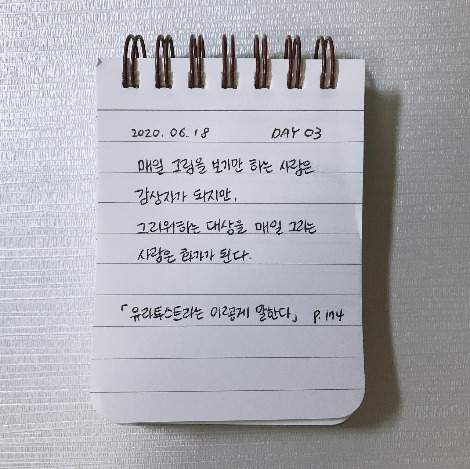 2020. 06. 18 DAY 03
매일 그림을 보기만 하는 사람은
감상자가 되지만,
그리워하는 대상을 매일 그리는
사람은 화가가 된다.
「유라투스트라는 이렇게 말한다」 P. 174